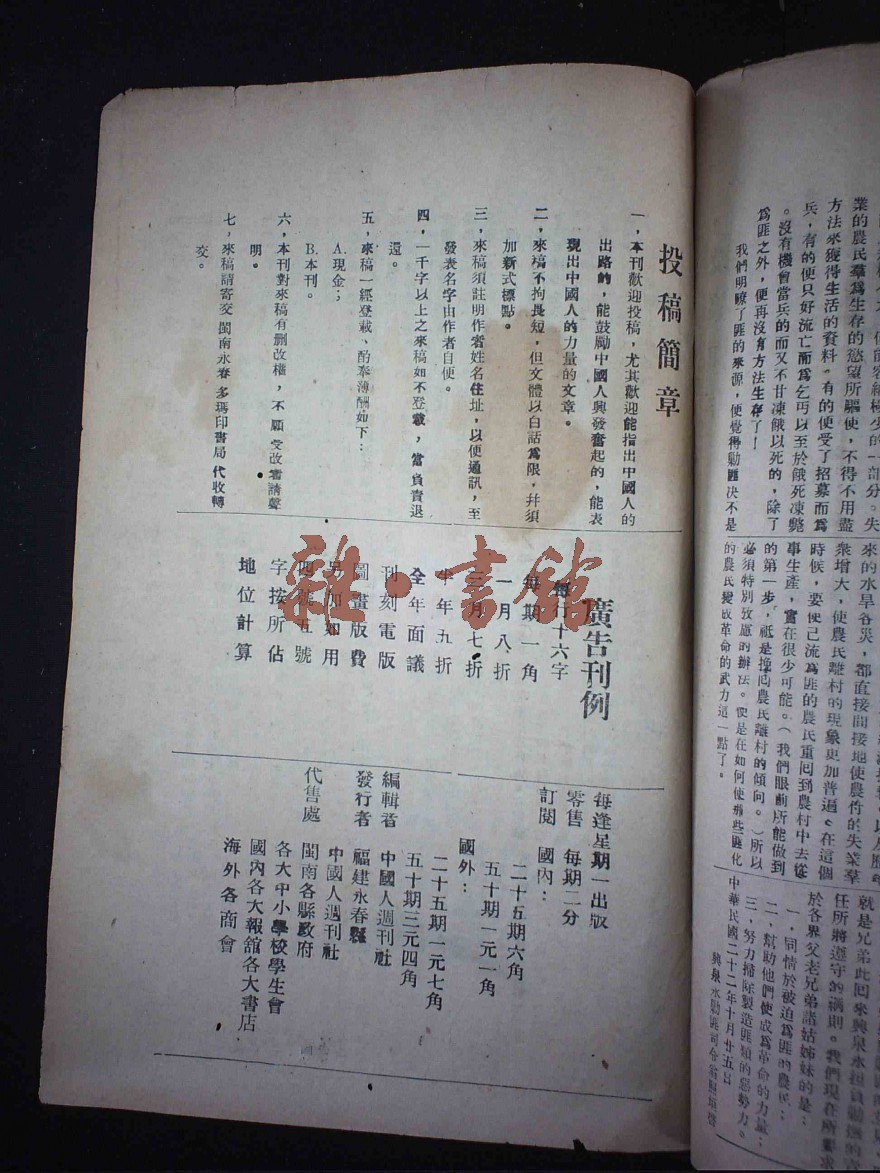 業的農民羣爲生存的慾望所驅使，不得不用盡
方法來獲得生活的資料。有的便受了招募而爲
兵，有的便只好流亡而爲乞丐以至於餓死凍斃
。沒有機會當兵的而又不甘凍餓以死的，除了
爲匪之外，便再沒有方法生存了！
我們明瞭了匪的來源，便覺得勦匪决不是
來的水旱各災，都直接間接地使農村的失業羣
衆增大，使農民離村的現象更加普遍。在這個
時候，要使已流爲匪的農民重囘到農村中去從
事生產，實在很少可能。（我們眼前所能做到
的第一步，祇是挽囘農民離村的傾向。）所以
必須特別攷慮的辦法。便是在如何使那些匪化
的農民變成革命的武力這一點了。
任所將遵守的綱則。我們現在所要求
於各界父老兄弟諸姑姊妹的是：
一，同情於被迫爲匪的農民；
二，幫助他們使成爲革命的力量；
三，努力掃除製造匪類的惡勢力。
中華民國二十二年十月廿五日
投稿簡章
一，本刊歡迎投稿，尤其歡迎能指出中國人的
出路的，能鼓勵中國人興發奮起的，能表
現出中國人的力量的文章。
二，來稿不拘長短，但文體以白話爲限，幷須
加新式標點。
三，來稿須註明作者姓名住址，以便通訊，至
發表名字由作者自便。
四，一千字以上之來稿如不登載，當負責退
還。
五，來稿一經登載、酌奉薄酬如下：
A.現金；
B.本刊。
六，本刊對來稿有删改權，不願受改審請聲
明。
七，來稿請寄交 閩南永春多瑪印書局 代收轉
交。
廣告刊例
每行十六字
每期一角
一月八折
三月七折
半年九折
全年面議
刊刻電版
圖畫版費
另加如用
四號五號
字按所佔
地位計算
每逢星期一出版
零售 每期二分
訂閱 國內：
二十五期六角
五十期一元一角
國外：
二十五期一元七角
五十期三元四角
編輯者 中國人週刊社
發行者 福建永春縣
中國人週刊社
代售處 閩南各縣政府
各大中小學校學生會
國內各大報館各大書店
海外各商會
雜·書館